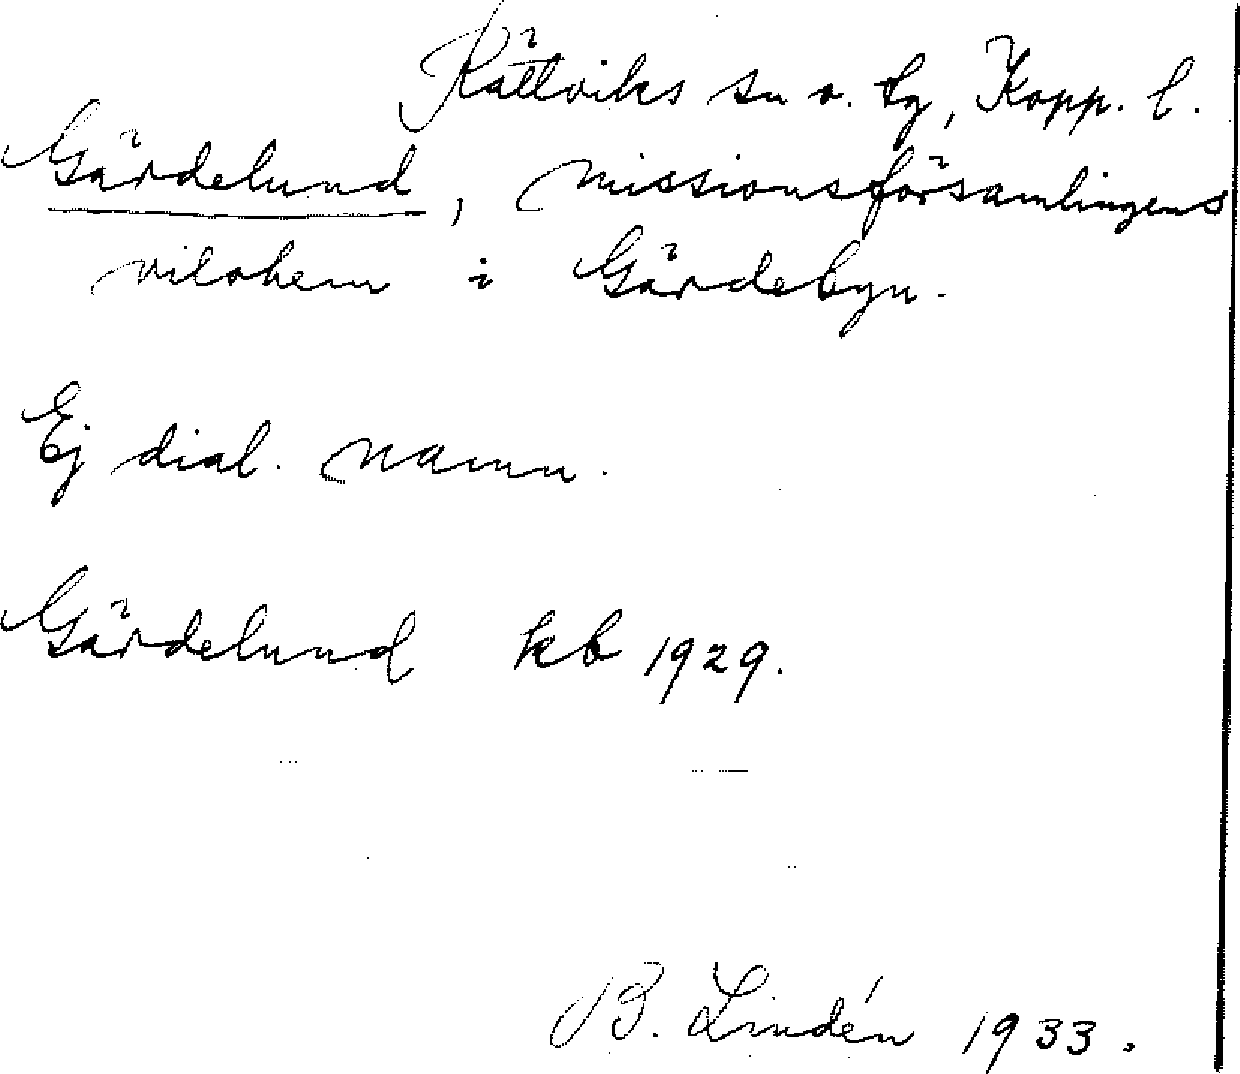 Rättviks sn o. tg, Kopp. l.
Gärdelund, missionsförsamlingens
vilohem i Gärdebyn.
Ej dial. namn.
Gärdelund kb 1929.
B. Lindén 1933.